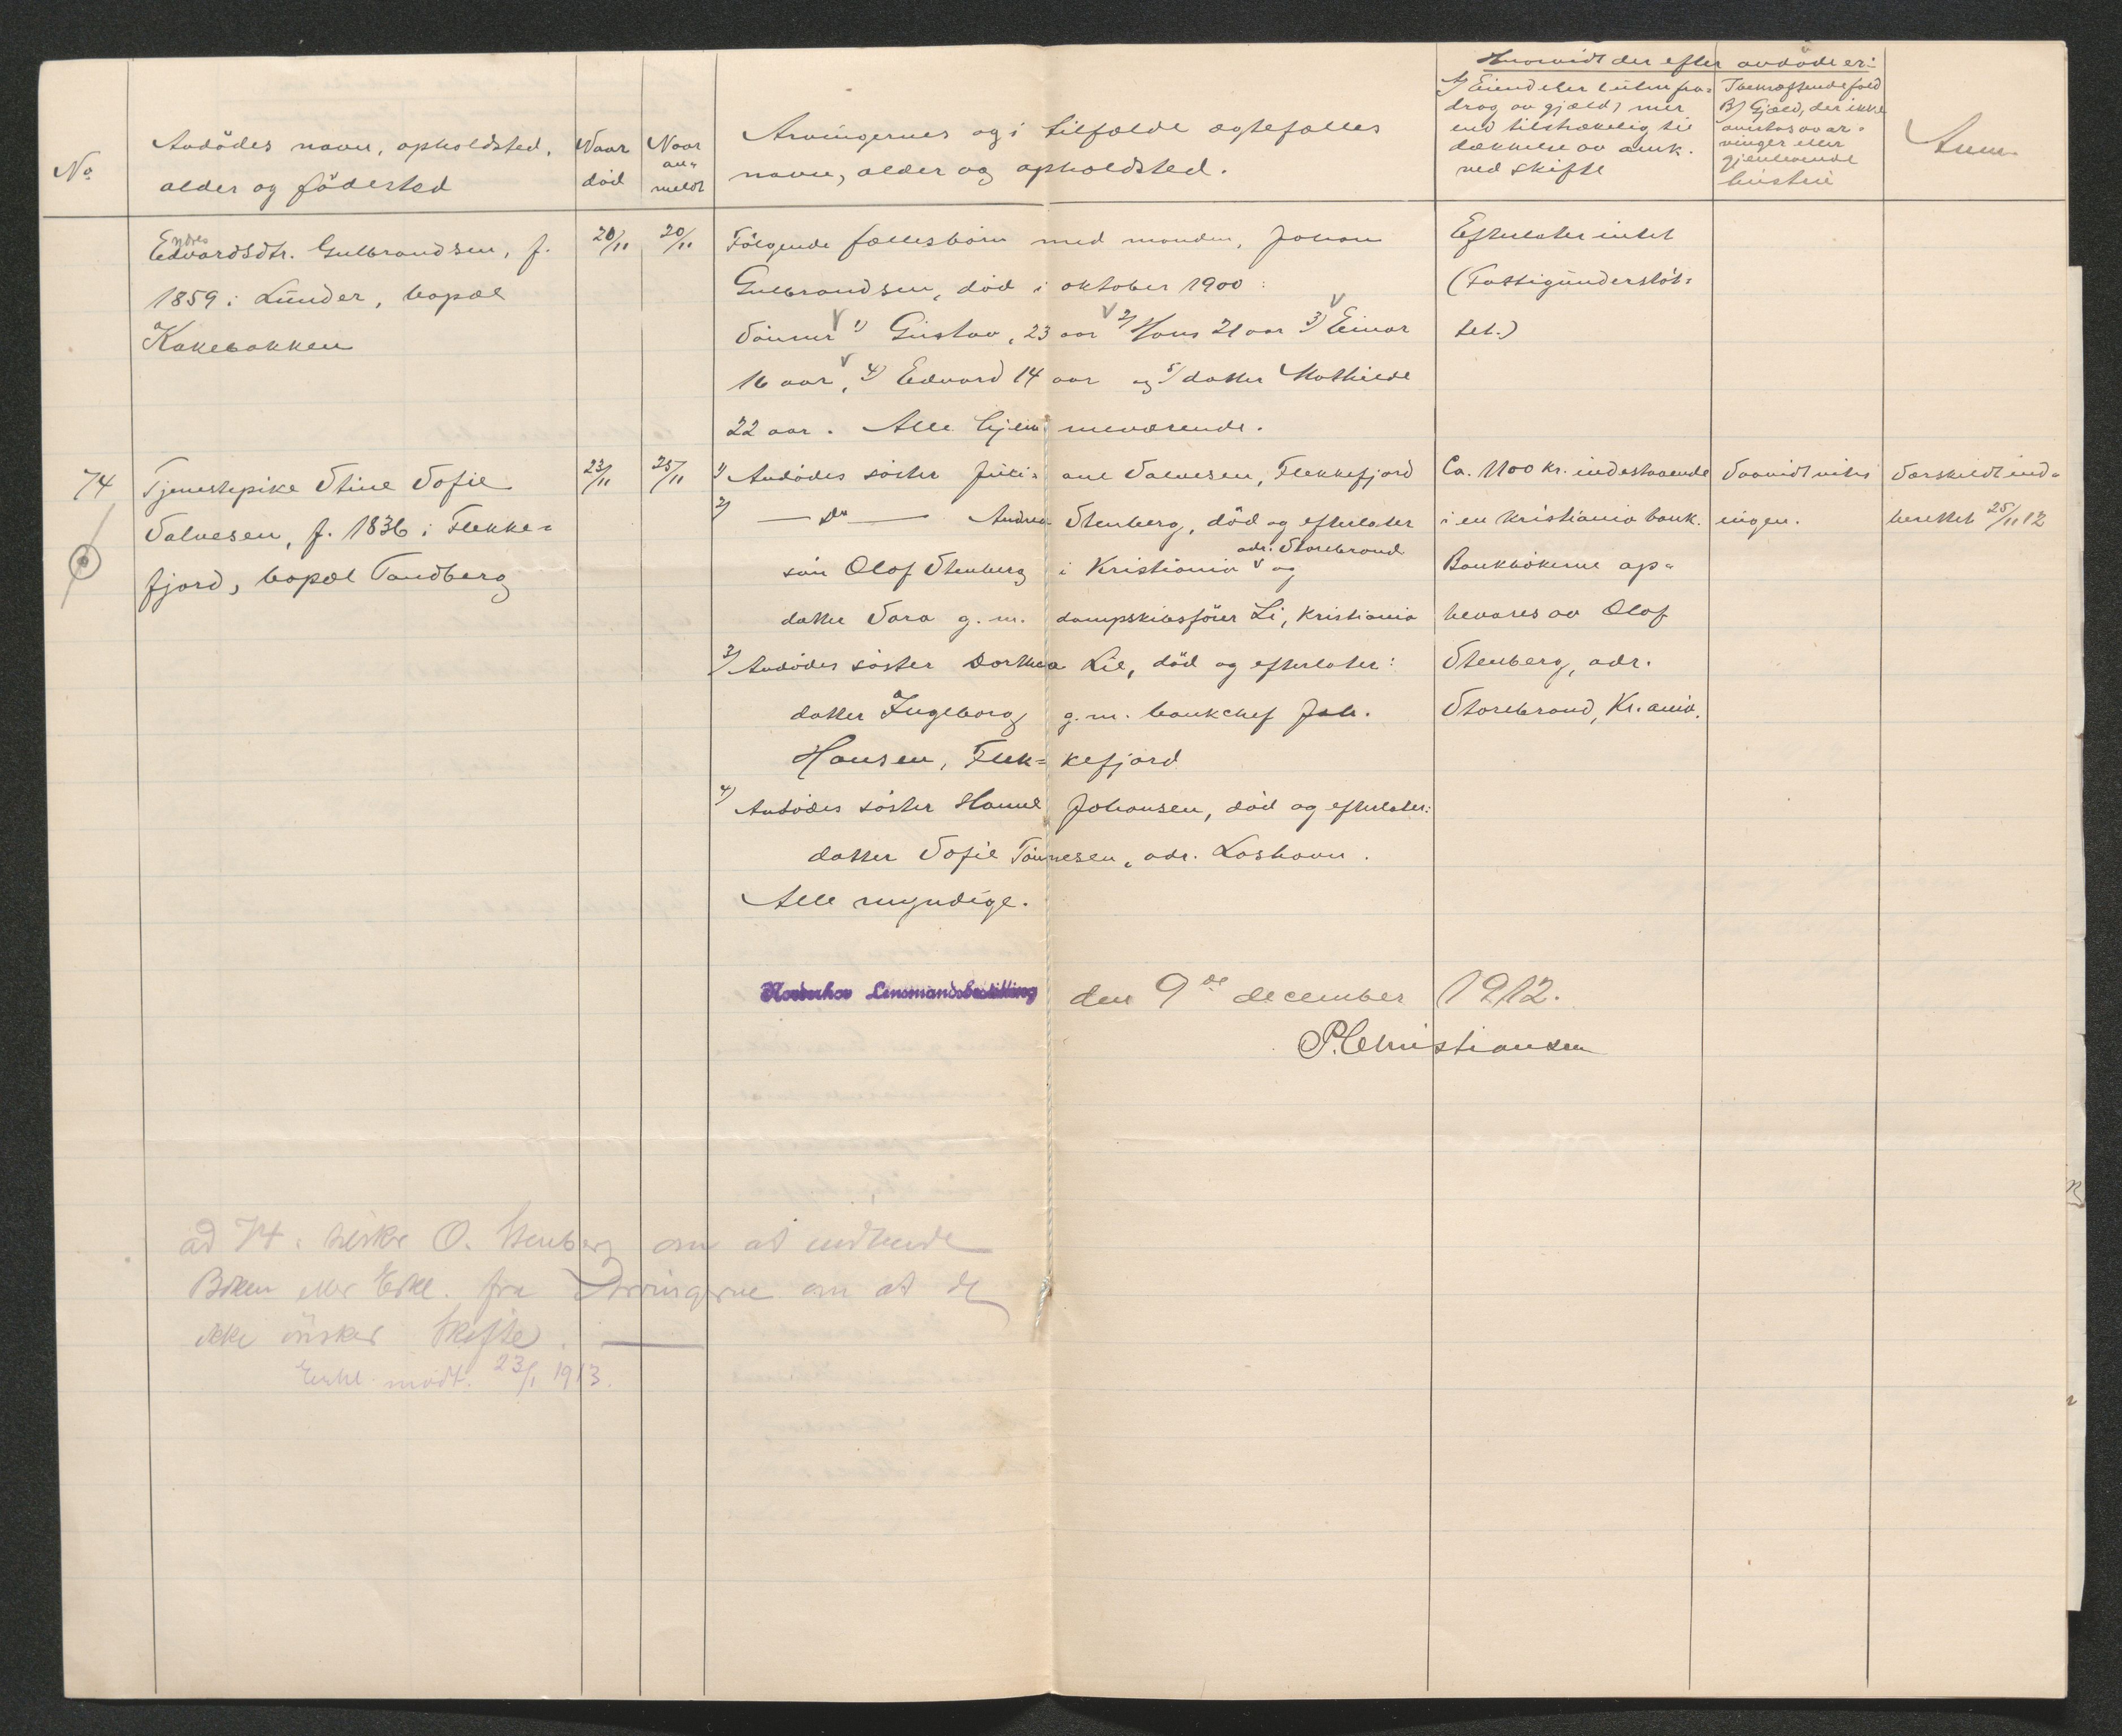 Hvorvidt der efter avdöde er:
No
Avdödes navn, opholdsted,
alder og födested
Naar
död
Naar
an-
meldt
Arvingernes og i tilfælde ægtefælles
navn, alder og opholdsted.
A) Eiendeler (uten fra-
drag av gjæld) mer
end tilstrækkelig til
dækkelse av omk.
ved skifte
I bekræftende fald
B) Gjæld, der ikke
overtas av ar-
vinger eller
gjenlevende
hustru
Anm.
Endres
Edvardsdtr. Gulbrandsen, f.
1859 i Lunder, bopæl
Kakebakken
20/11
20/11
Fölgende fællesbörn med manden, Johan
Gulbrandsen, död i oktober 1900:
Sönner 1) Gustav, 23 aar 2) Hans 21 aar 3) Einar
16 aar, 4) Edvard 14 aar og 5) datter Mathilde
22 aar. Alle hjemmeværende.
Efterlater intet
(Fattigunderstöt-
tet.)
74
Tjenestepike Stine Sofie
Salvesen, f. 1836 i Flekke-
fjord, bopæl Tandberg
23/11
25/11
1) Avdödes söster Juli- ane Salvesen, Flekkefjord
2) — Do — Andrea Stenberg, död og efterlater
adr. Storebrand
sön Olaf Stenberg i Kristiania og
datter Sara g. m. dampskibsförer Li, Kristiania
3) Avdödes söster Dorthea Lie, död og efterlater:
datter Ingeborg g. m. bankchef Joh.
Hansen, Flek- kefjord
4) Avdödes söster Hanne Johansen, död og efterlater:
datter Sofie Tönnesen, adr. Loshavn.
Alle myndige.
Ca. 1100 kr. indestaaende
i en Kristiania bank.
Bankbökerne op-
bevares av Olaf
Stenberg, adr.
Storebrand, Kr.ania.
Saavidt vites
ingen.
Særskildt ind-
berettet 25/11 12
Norderhov Lensmandsbestilling den 9de december 1912.
P. Christiansen
ad 74. tilskr. O. Stenberg om at indsende
Boken eller Erkl. fra Arvingerne om at de
ikke önsker Skifte. —
Erkl. modt. 23/1 1913.